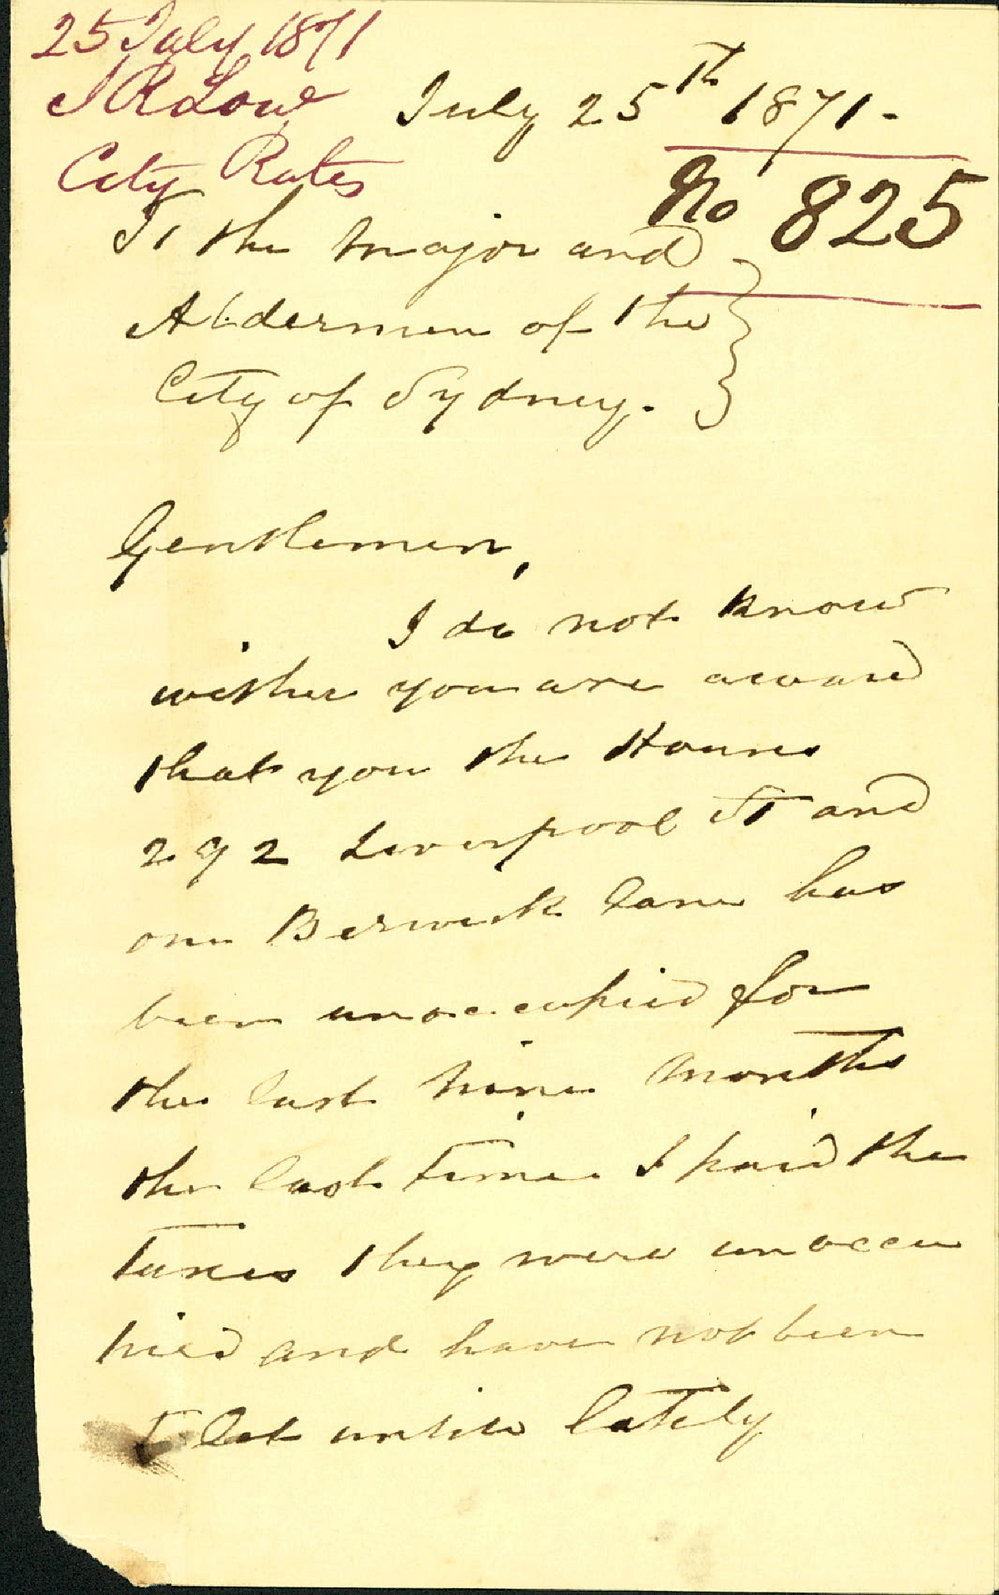 25 July 1871
J R Low
City Rates
July 25th 1871.
No 825
To the Major and
Aldermen of the
City of Sydney.
Gentlemen,
I do not know
wither you are award
that you the Houses
292 Liverpool St and
one Berwick lane has
been unoccupied for
the last nine months
the last time I paid the
Taxes they were unoccu
pied and have not been
let until lately